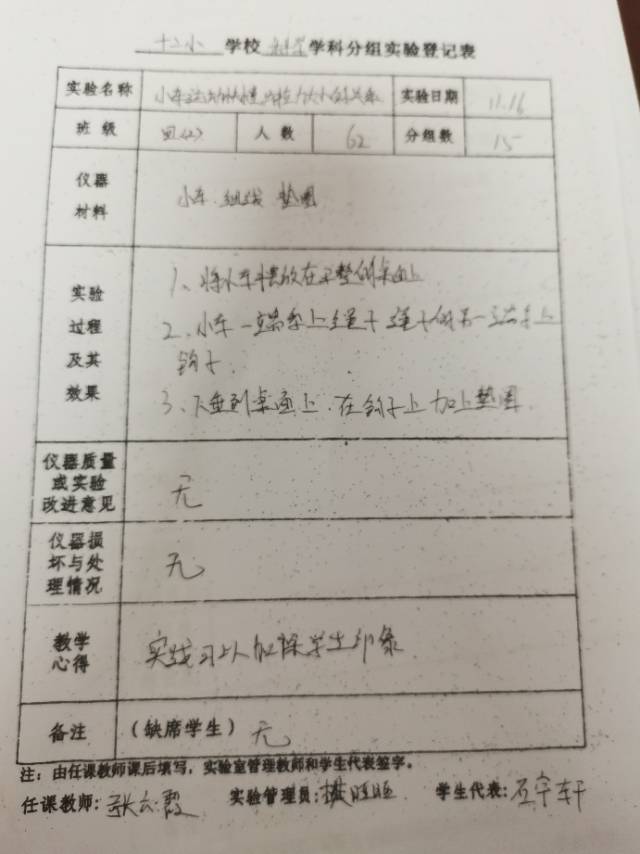 十二小 学校 科学 学科分组实验登记表
实验名称 小车运动快慢与拉力大小的关系 实验日期 11.16
班 级 四(2) 人 数 62 分组数 15
仪器
材料
小车. 细线 垫圈
实验
过程
及其
效果
1、将小车摆放在平整的桌面上
2、小车一端系上绳子 绳子的另一端系上
钩子.
3、下垂到桌面上.在钩子上加上垫圈.
仪器质量
或实验
改进意见
无
仪器损
坏与处
理情况
无
教学
心得
实践可以加深学生印象.
备注 (缺席学生) 无
注：由任课教师课后填写，实验室管理教师和学生代表签字。
任课教师: 张云霞 实验管理员: 学生代表: 石宇轩